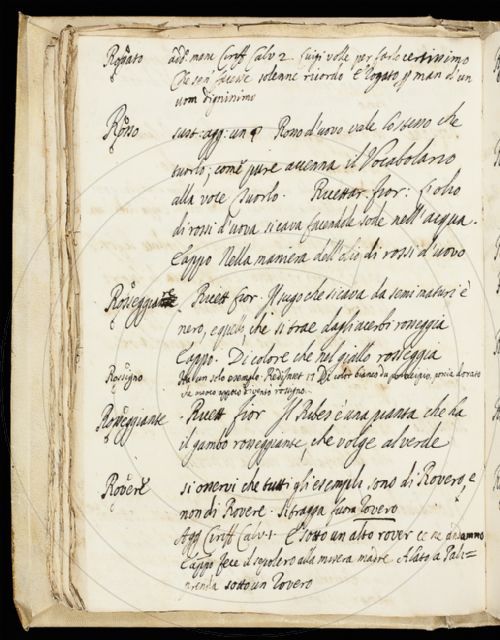 Rogato add: mane Ciriff Calv 2. Luigi volle per farlo certissimo
Che sen' facesse solenne ricordo E rogato p man d'un
uom dignissimo
Rosso sust: agg: un § Rosso d'uovo vale lo stesso che
tuorlo; come pure accenna il Vocabolario
alla voce Tuorlo. Ricettar fior: L'olio
di rossi d'uova si cava facendole sode nell'acqua.
E appo Nella maniera dell'olio di rossi d'uovo
Rosseggiare. Ricett fior. Il sugo che si cava da semi maturi è
nero, e quello, che si trae dagli acerbi rosseggia
E appo. Di colore che nel giallo rosseggia
Rossigno Ha un solo esempio. Red: Di color bianco da principio, poscia dorato
divento rossigno.
Rosseggiante. Ricett fior Il Ribes è una pianta che ha
il gambo rosseggiante, che volge al verde
Rovere si osservi che tutti gli esempli, sono di Rovero, e
non di Rovere. Si tragga fuora Rovero
Agg Ciriff Calv. 1. E sotto un alto rover ce ne andammo
E appo Fece il sepolcro alla misera madre Allato a Pali=
prenda sotto un Rovero